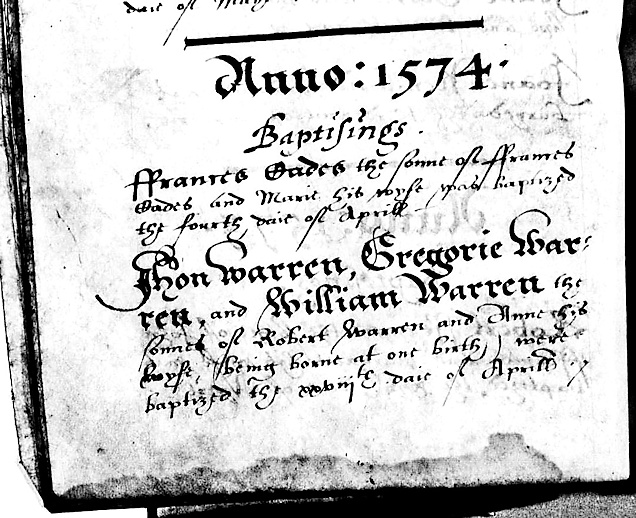 daie of May
Anno: 1574.
Baptisings.
ffrances Eades the sonne of ffrances
Eades and Marie his wyfe was baptized
the fourth daie of Aprill
Jhon Warren, Gregorie War:
ren, and William Warren the
sonnes of Robert Warren and Anne his
wyfe, (being borne at one birth,) were
baptized the xxviijth daie of Aprill